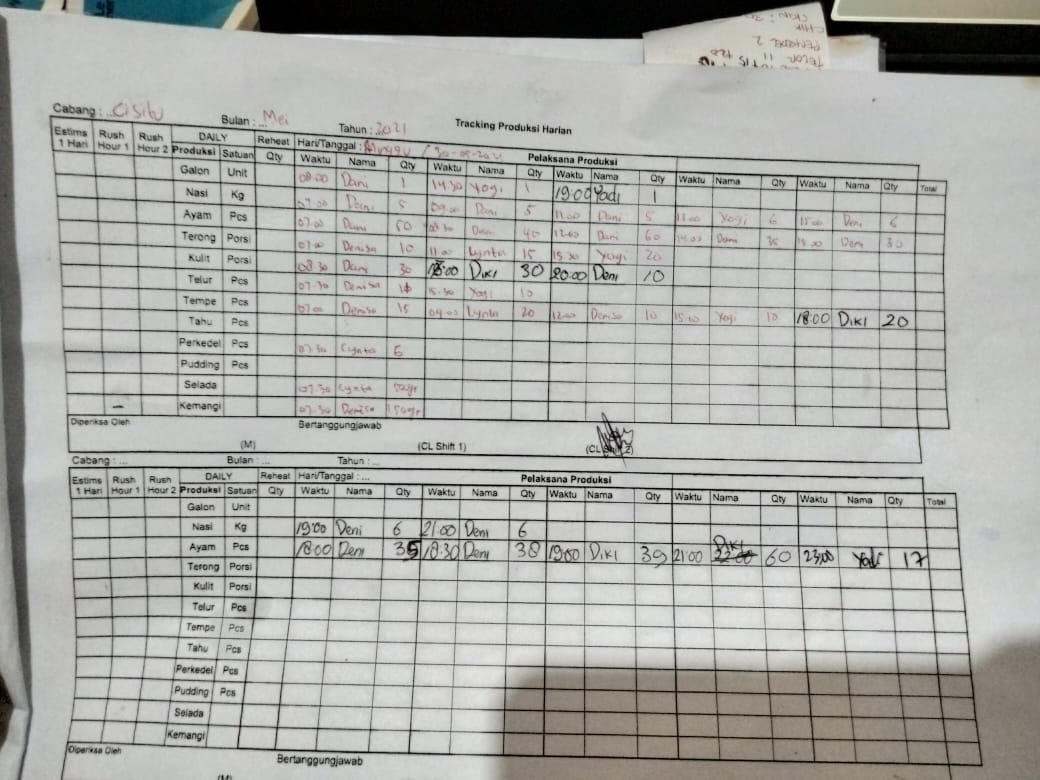 Cabang : ..Cisitu
Bulan : ...Mei
Tahun : 2021
Tracking Produksi Harian
Estims 1 Hari Rush Hour 1 Rush Hour 2 DAILY Reheat Hari/Tanggal : Minggu / 30-05-2021 Pelaksana Produksi
Produksi Satuan Qty Waktu Nama Qty Waktu Nama Qty Waktu Nama Qty Waktu Nama Qty Waktu Nama Qty Total
Galon Unit 08.00 Dani 1 14.30 Yogi 1 19:00 Yadi 1
Nasi Kg 07.00 Dani 5 09.00 Dani 5 11.00 Dani 5 Yogi 6 Deni 6
Ayam Pcs 07.00 Dani 50 Dani 40 12.00 Dani 60 14.00 Dani Deni 30
Terong Porsi 07.00 Denisa 10 11.00 Cynta 15 15.30 Yogi 20
Kulit Porsi 08.30 Dani 30 18:00 DIKI 30 20:00 Deni 10
Telur Pcs 07.30 Denisa 15.30 Yogi 10
Tempe Pcs 07.00 Denisa 15 09.00 Cynta 20 12.00 Denisa 10 Yogi 10 18:00 DIKI 20
Tahu Pcs
Perkedel Pcs 07.30 Cynta 5
Pudding Pcs
Selada 07.30 Cynta 50gr
Kemangi 07.30 Denisa 150gr
Diperiksa Oleh
Bertanggungjawab
(M)
(CL Shift 1)
(CL Shift 2)
Cabang : ...
Bulan : ...
Tahun : ...
Estims 1 Hari Rush Hour 1 Rush Hour 2 DAILY Reheat Hari/Tanggal : ... Pelaksana Produksi
Produksi Satuan Qty Waktu Nama Qty Waktu Nama Qty Waktu Nama Qty Waktu Nama Qty Waktu Nama Qty Total
Galon Unit
Nasi Kg 19:00 Deni 6 21:00 Deni 6
Ayam Pcs 18:00 Deni 35 18:30 Deni 38 19:00 DIKI 39 21:00 DIKI 60 23:00 Yadi 17
Terong Porsi
Kulit Porsi
Telur Pcs
Tempe Pcs
Tahu Pcs
Perkedel Pcs
Pudding Pcs
Selada
Kemangi
Diperiksa Oleh
Bertanggungjawab
(M)